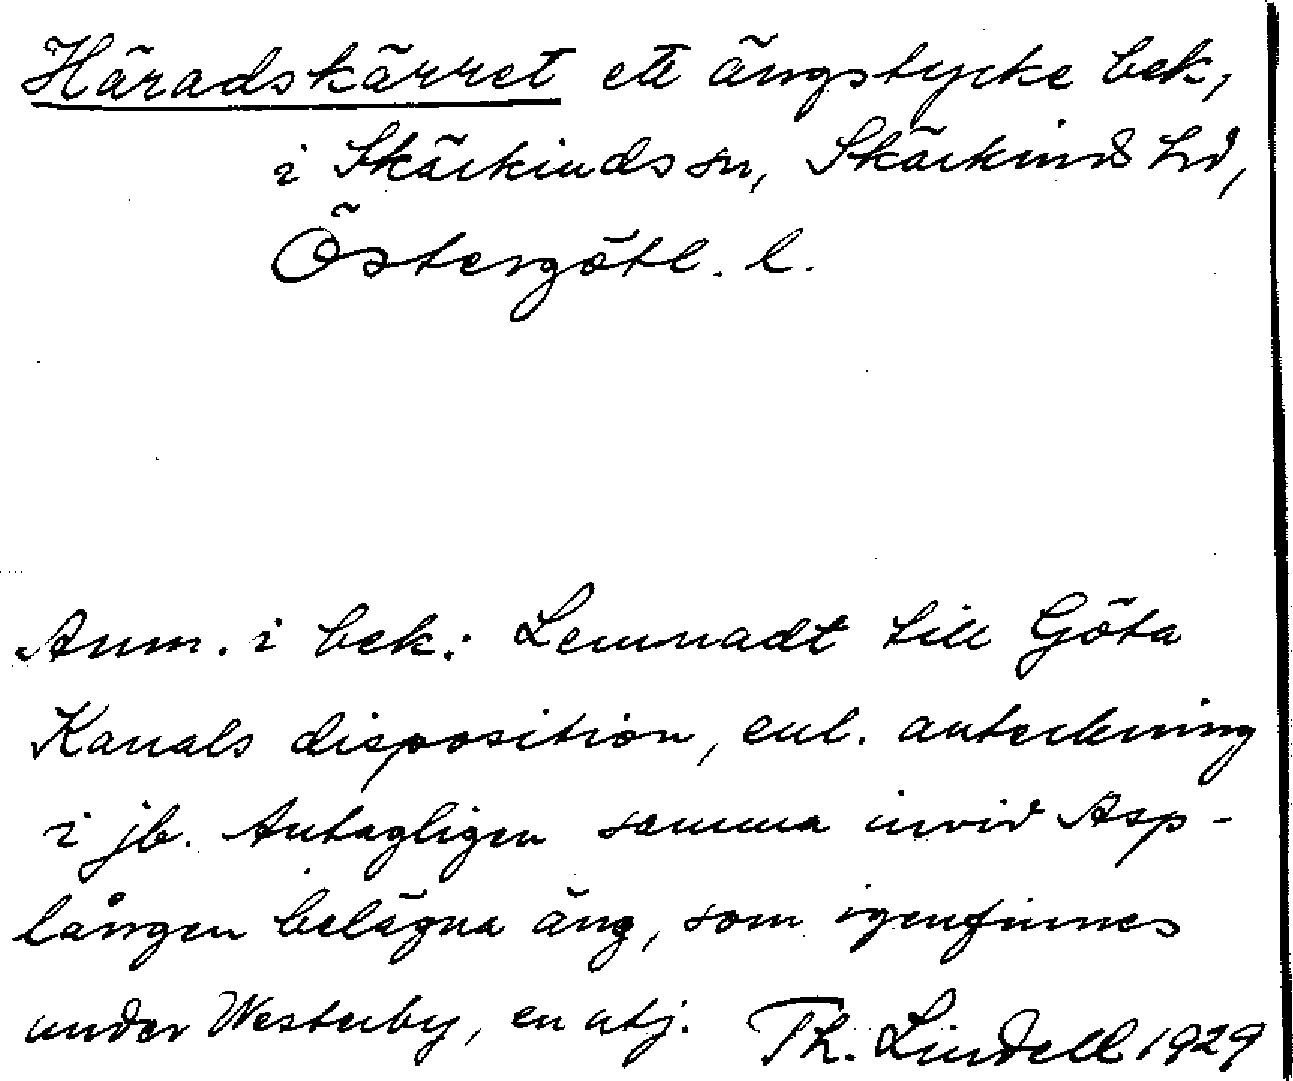 Häradskärret ett ängstycke bek,
i Skärkinds sn, Skärkinds hd,
Östergötl. l.
Anm. i bek.: Lemnadt till Göta
Kanals disposition, enl. anteckning
i jb. Antagligen samma invid Asp-
lången belägna äng, som igenfinnes
under Westerby, en utj. Th. Lindell 1929